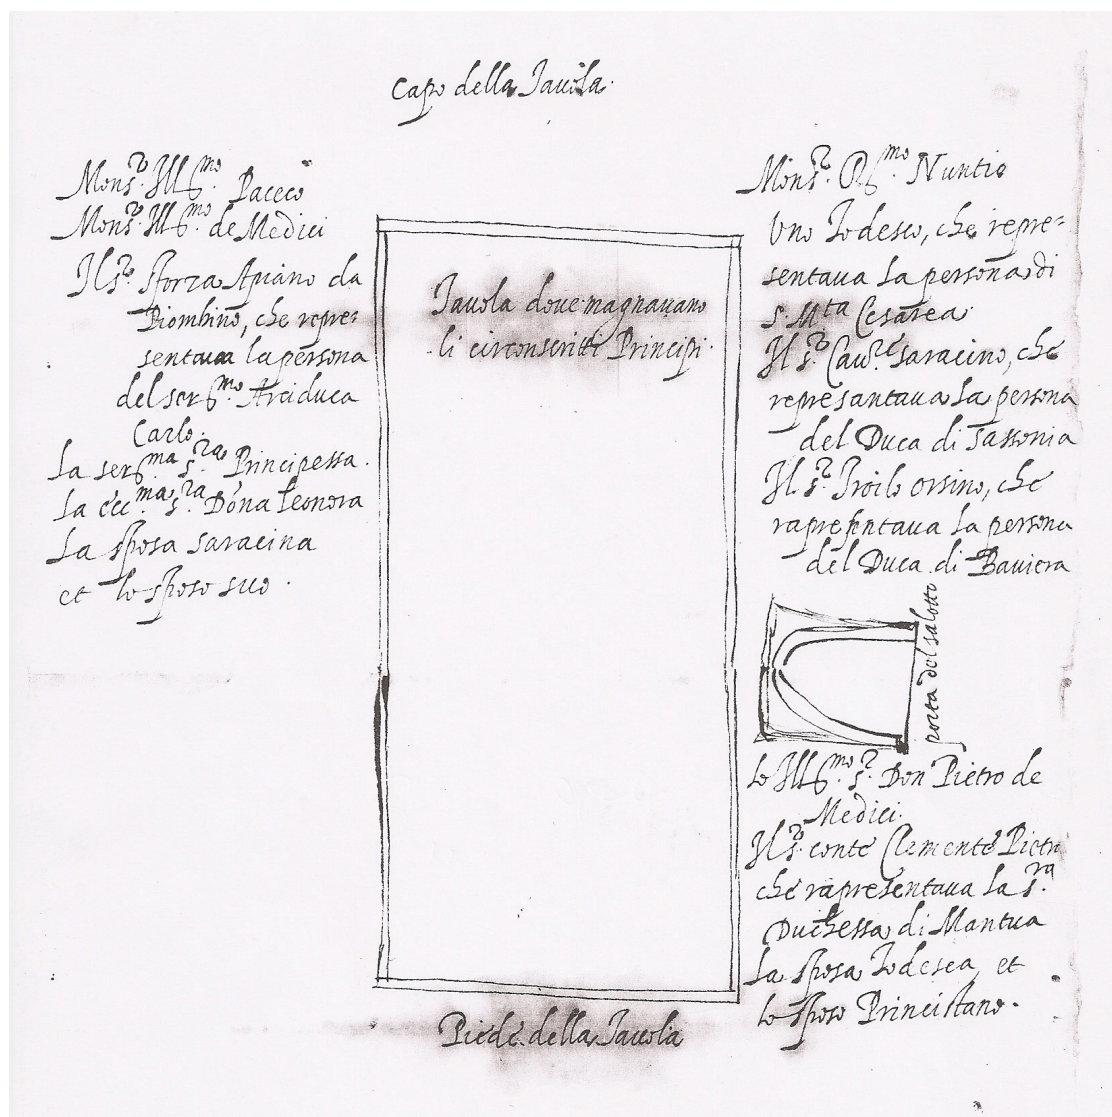 Capo della Tavola.
Mons.r Ill.mo Paceco
Mons.r Ill.mo de Medici
Il s.r Sforza Apiano da
Piombino, che repre-
sentava la persona
del ser.mo Arciduca
Carlo.
La ser.ma s.ra Principessa.
La ecc.ma s.ra Dona Leonora
La sposa saracina
et lo sposo suo.
Tavola dove magnavano
li circonscritti Principi.
Mons.r R.mo Nuntio
Uno Todesco, che repre-
sentava la persona di
S. M.ta Cesarea.
Il s.r Cav.re Saracino, che
represantava la persona
del Duca di Sassonia
Il s.r Troilo Orsino, che
rapresentava la persona
del Duca di Baviera
porta del salotto
Lo Ill.mo s.r Don Pietro de
Medici.
Il s.r conte Clemente Pietra
che rapresentava la s.ra
Duchessa di Mantua
La sposa Todesca, et
lo sposo
Piede della Tavola